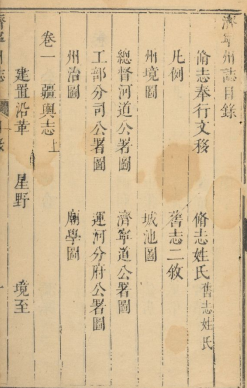 濟寧州志目錄
脩志奉行文移　脩志姓氏 舊志姓氏
凡例　舊志二攷
州境圖　城池圖
總督河道公署圖　濟寧道公署圖
工部分司公署圖　運河分府公署圖
州治圖　廟學圖
卷一　疆輿志上
建置沿革　星野　境至